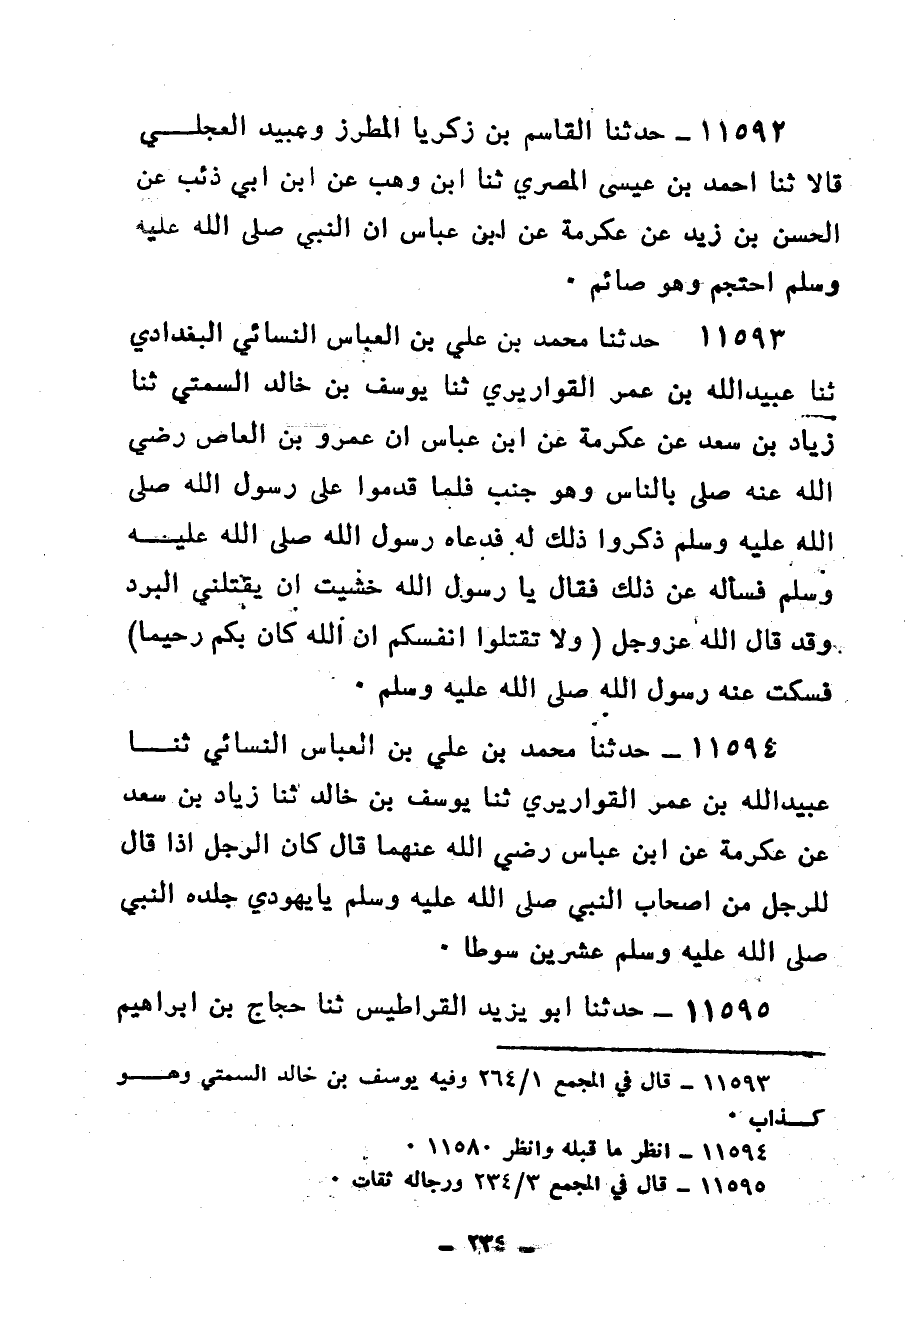 ١١٥٩٢ ـ حدثنا القاسم بن زكريا المطرز وعبيد العجلـــي
قالا ثنا احمد بن عيسى المصري ثنا ابن وهب عن ابن ابي ذئب عن
الحسن بن زيد عن عكرمة عن ابن عباس ان النبي صلى الله عليه
وسلم احتجم وهو صائم ٠
١١٥٩٣ حدثنا محمد بن علي بن العباس النسائي البغدادي
ثنا عبيدالله بن عمر القواريري ثنا يوسف بن خالد السمتي ثنا
زياد بن سعد عن عكرمة عن ابن عباس ان عمرو بن العاص رضي
الله عنه صلى بالناس وهو جنب فلما قدموا على رسول الله صلى
الله عليه وسلم ذكروا ذلك له فدعاه رسول الله صلى الله عليـــه
وسلم فسأله عن ذلك فقال يا رسول الله خشيت ان يقتلني البرد
وقد قال الله عزوجل ( ولا تقتلوا انفسكم ان الله كان بكم رحيما)
فسكت عنه رسول الله صلى الله عليه وسلم ٠
١١٥٩٤ ـ حدثنا محمد بن علي بن العباس النسائي ثنـــا
عبيدالله بن عمر القواريري ثنا يوسف بن خالد ثنا زياد بن سعد
عن عكرمة عن ابن عباس رضي الله عنهما قال كان الرجل اذا قال
للرجل من اصحاب النبي صلى الله عليه وسلم يايهودي جلده النبي
صلى الله عليه وسلم عشرين سوطا ٠
١١٥٩٥ ـ حدثنا ابو يزيد القراطيس ثنا حجاج بن ابراهيم
١١٥٩٣ ـ قال في المجمع ٢٦٤/١ وفيه يوسف بن خالد السمتي وهـــو
كـــذاب ٠
١١٥٩٤ ـ انظر ما قبله وانظر ١١٥٨٠ ٠
١١٥٩٥ ـ قال في المجمع ٢٣٤/٣ ورجاله ثقات ٠
ـ ٢٣٤ ـ